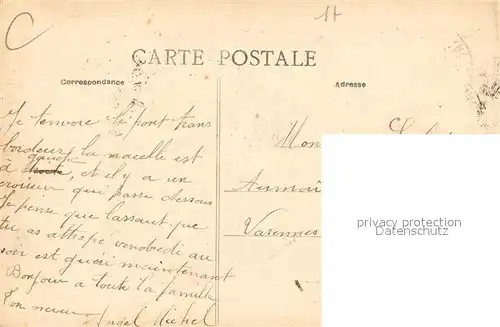 CARTE POSTALE
Correspondance
Adresse
Je tenvoie le pont trans
bordeur la nacelle est
gauche
à droite, et il y a un
croiseur qui passe dessous
Je pense que lassaut que
tu as attrapé vendredi au
soir est guéri maintenant
Bonjour a toute la famille
Ton neveu
Michel
Mon
Varennes
privacy protection
www.delcampe.net